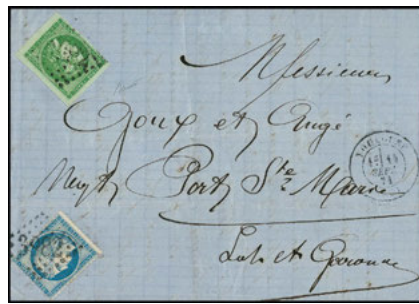 Messieurs
Goux et Augé
Negts Port Ste Marie
Lot et Garonne